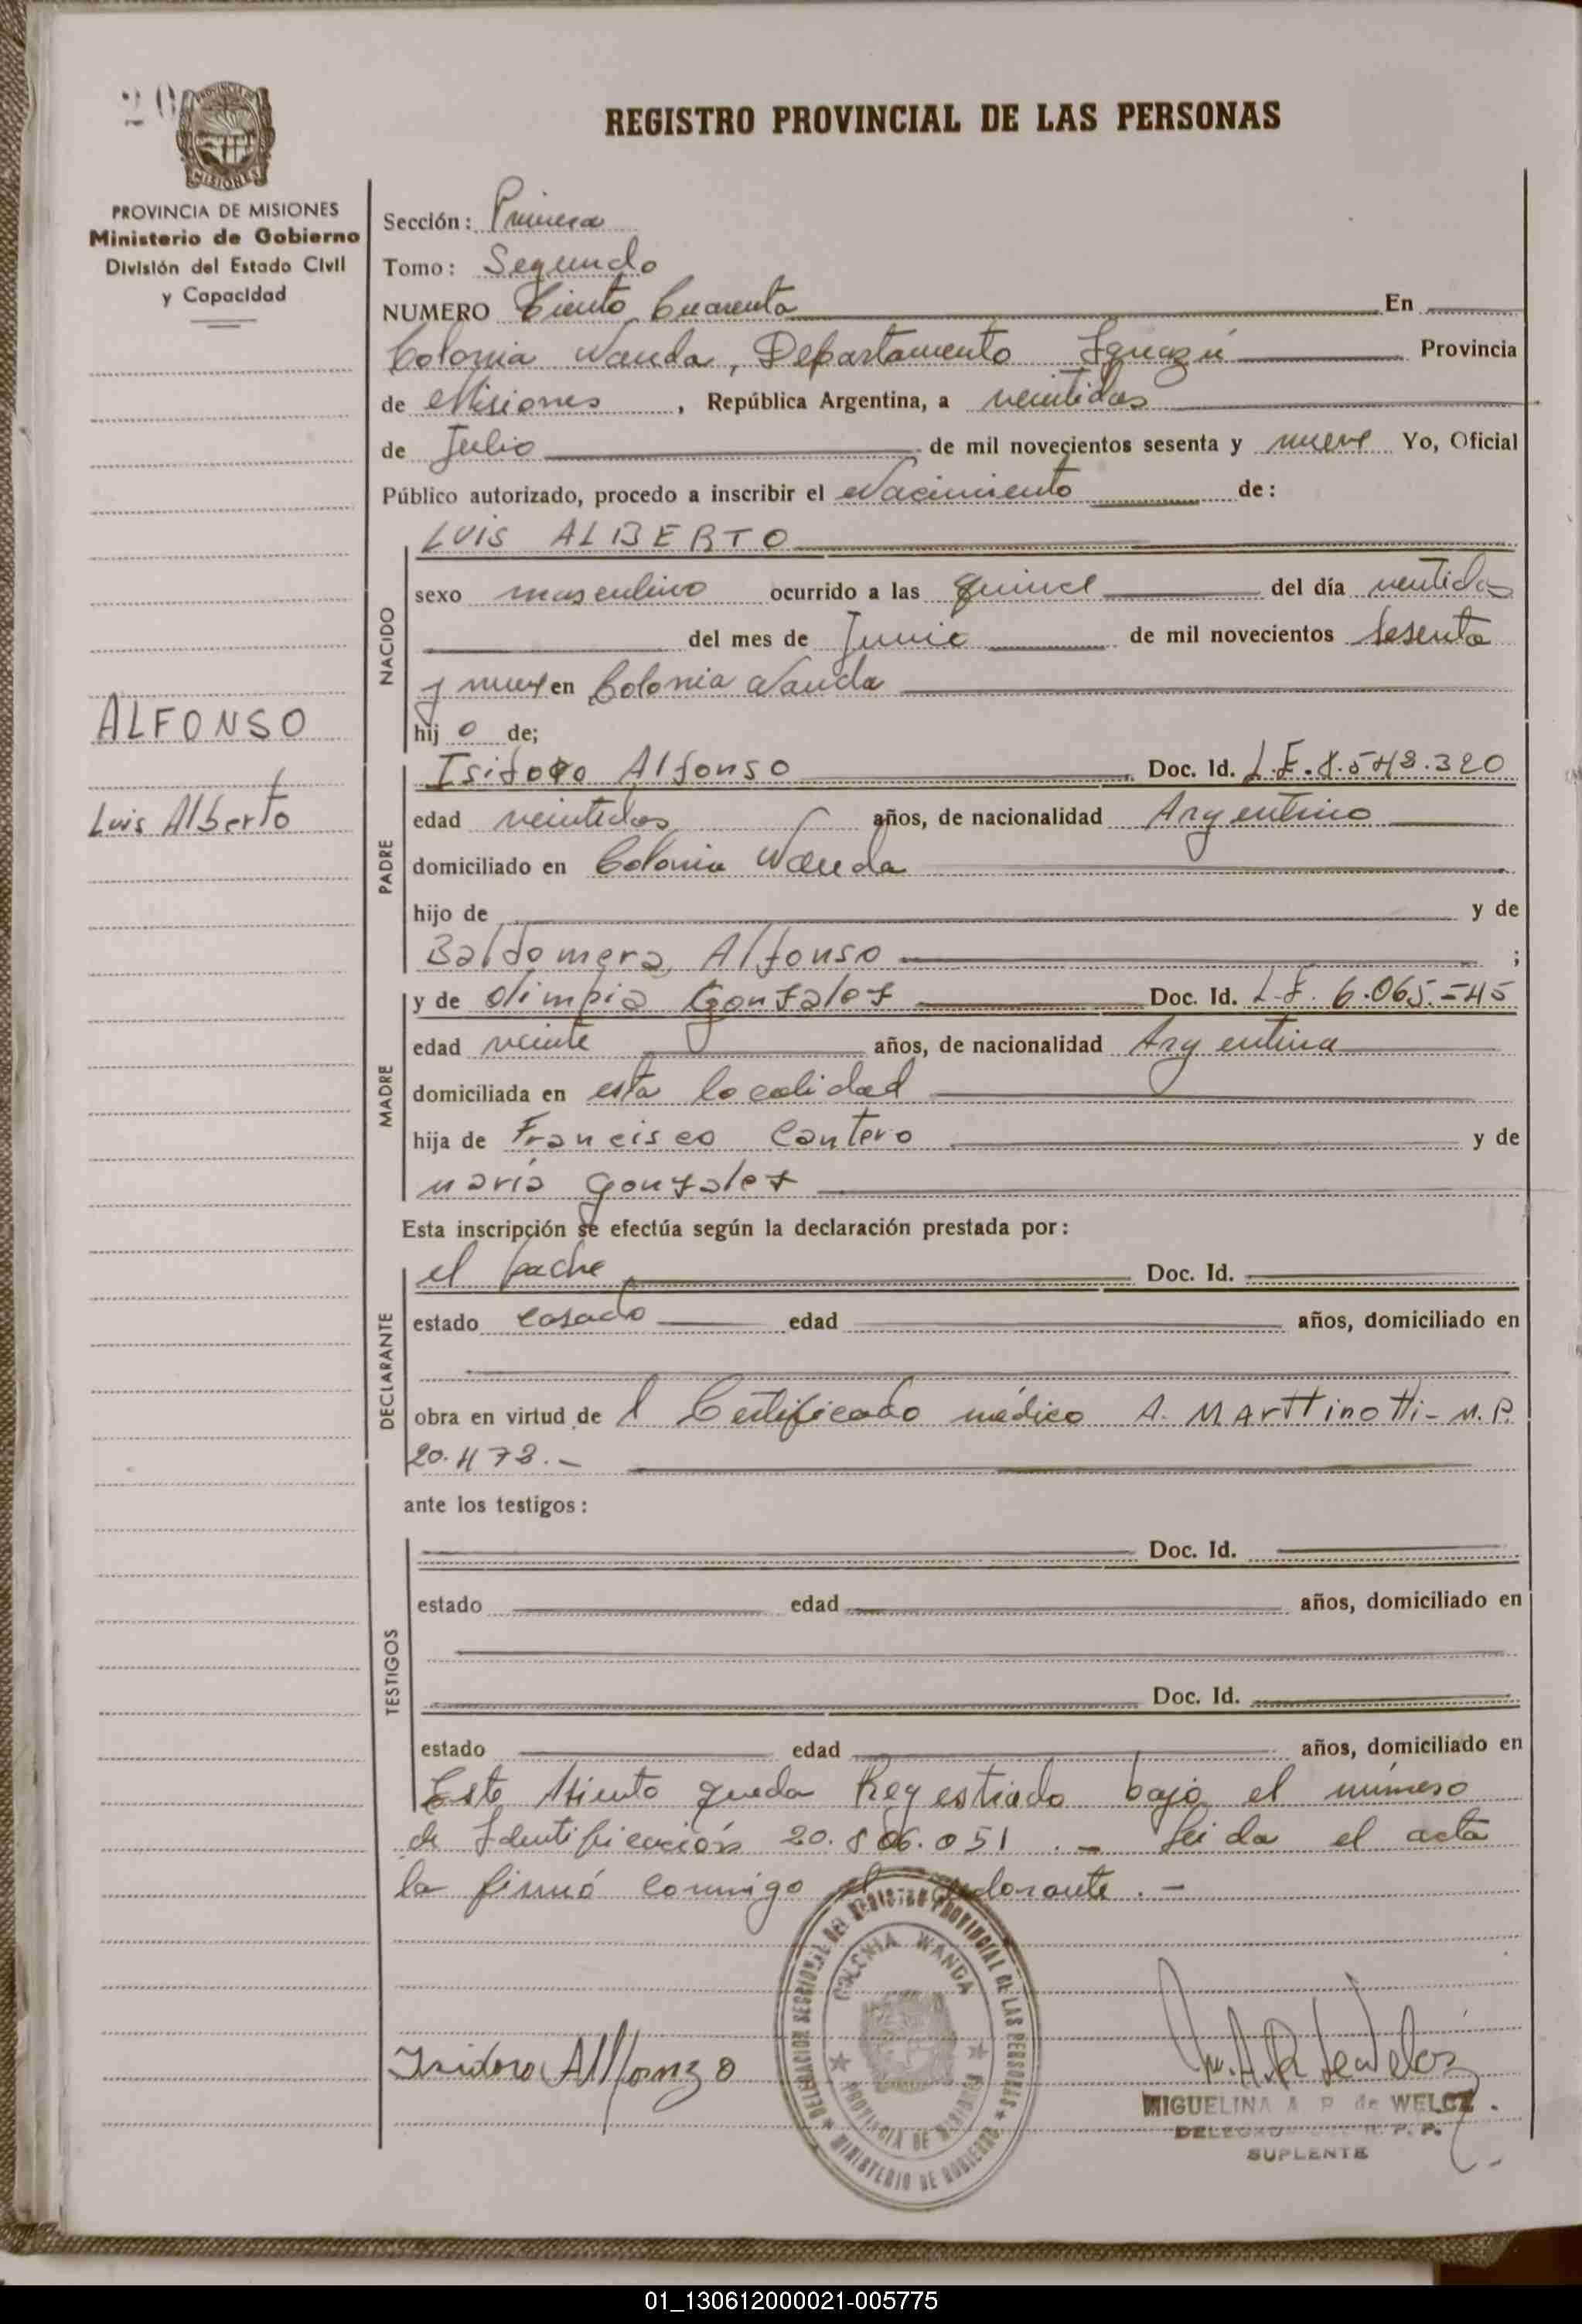 REGISTRO PROVINCIAL DE LAS PERSONAS
MISIONES
PROVINCIA DE MISIONES
Ministerio de Gobierno
División del Estado Civil
y Capacidad
ALFONSO
Luis Alberto
Sección: Primera
Tomo: Segundo
NUMERO Ciento Cuarenta En
Colonia Wanda, Departamento Iguazú Provincia
de Misiones, República Argentina, a veintidos
de Julio de mil novecientos sesenta y nueve Yo, Oficial
Público autorizado, procedo a inscribir el Nacimiento de:
NACIDO
LUIS ALBERTO
sexo masculino ocurrido a las quince del día ventidos
del mes de Junio de mil novecientos sesenta
y nueve en Colonia Wanda
hijo de;
PADRE
Isidoro Alfonso Doc. Id. L.E. 8.548.320
edad veintidos años, de nacionalidad Argentino
domiciliado en Colonia Wanda
hijo de y de
Baldomera Alfonso ;
MADRE
y de Olimpia Gonzalez Doc. Id. 6.065.545
edad veinte años, de nacionalidad Argentina
domiciliada en esta localidad
hija de Francisco Cantero y de
maria Gonzalez
Esta inscripción se efectúa según la declaración prestada por:
DECLARANTE
el padre Doc. Id.
estado casado edad años, domiciliado en
obra en virtud de l Certificado médico A. MArttinotti- M.P.
20.473.-
ante los testigos:
TESTIGOS
Doc. Id.
estado edad años, domiciliado en
Doc. Id.
estado edad años, domiciliado en
Este Asiento queda Regestrado bajo el número
de Identificación 20.806.051.- Leida el acta
la firmó conmigo el declarante.-
DELEGACION SECCIONAL DEL REGISTRO PROVINCIAL DE LAS PERSONAS
COLONIA WANDA
PROVINCIA DE MISIONES
MINISTERIO DE GOBIERNO
Isidoro Alfonzo
MIGUELINA A. R. de WELCZ
SUPLENTE
01_130612000021-005775